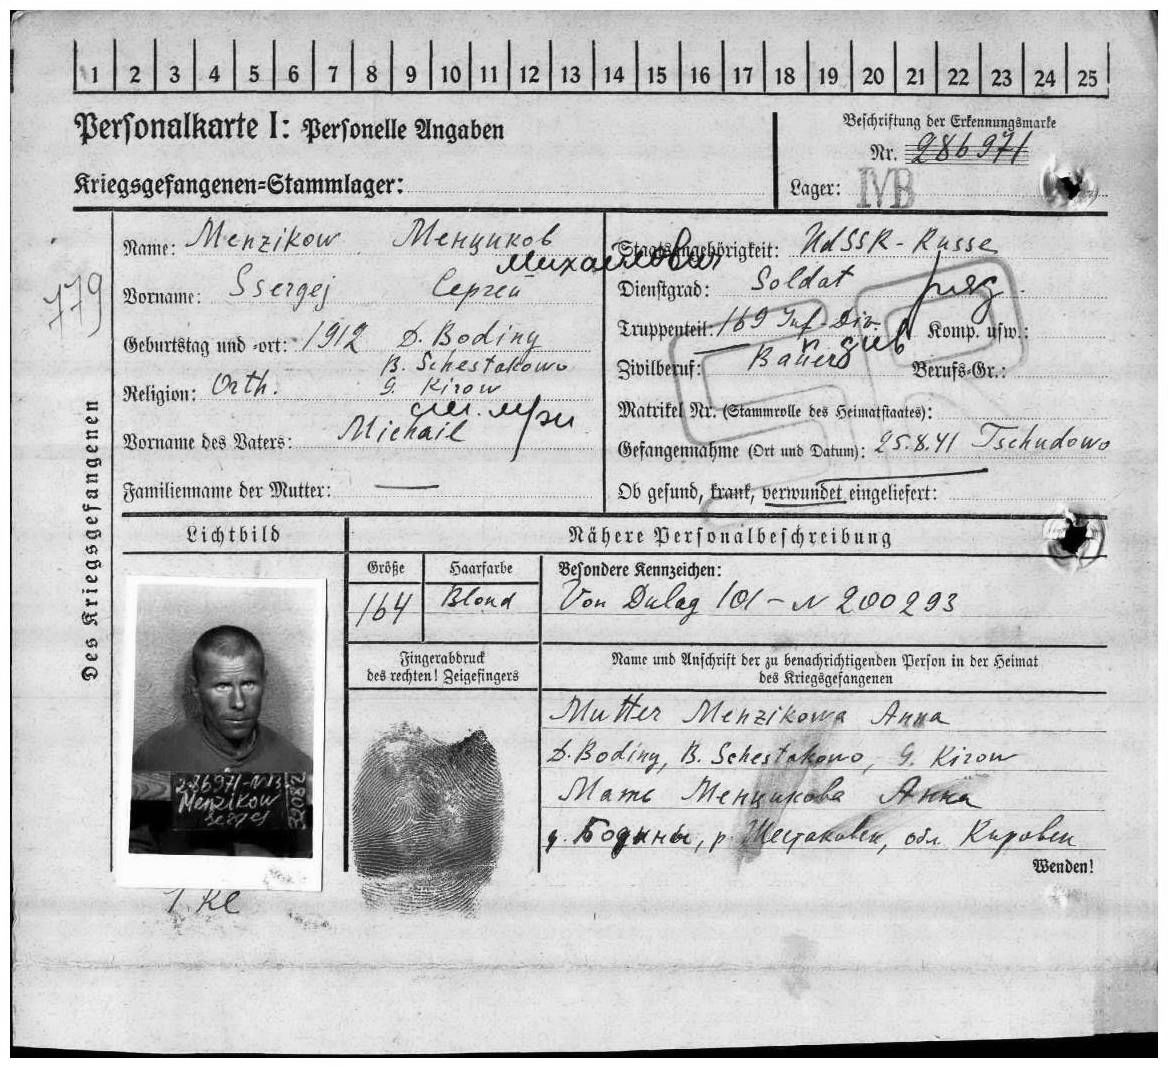 1 2 3 4 5 6 7 8 9 10 11 12 13 14 15 16 17 18 19 20 21 22 23 24 25
Personalkarte I: Personelle Angaben
Beschriftung der Erkennungsmarke
Nr. 286971
Kriegsgefangenen-Stammlager:
Lager: IVB
Des Kriegsgefangenen
779
Name: Menzikow Менциков
Михайлович
Vorname: Ssergej Сергей
Geburtstag und -ort: 1912 D. Bodiny
B. Schestakowo
Religion: Orth. G. Kirow
Vorname des Vaters: Michail
Familienname der Mutter: —
Staatsangehörigkeit: UdSSR - Russe
Dienstgrad: Soldat ряд
Truppenteil: 169 Inf. Div. Komp. usw.:
див
Zivilberuf: Bauer Berufs-Gr.:
Matrikel Nr. (Stammrolle des Heimatstaates):
Gefangennahme (Ort und Datum): 25.8.41 Tschudowo
Ob gesund, krank, verwundet eingeliefert:
Lichtbild
Nähere Personalbeschreibung
Größe
164
Haarfarbe
Blond
Besondere Kennzeichen:
Von Dulag 101 - N 200293
Fingerabdruck
des rechten! Zeigefingers
Name und Anschrift der zu benachrichtigenden Person in der Heimat
des Kriegsgefangenen
Mutter Menzikowa Anna
D. Bodiny, B. Schestakowo, G. Kirow
Мать Менцикова Анна
д. Бодины, р. Шестаковск, обл. Кировск
Wenden!
286971
Menzikow
Sergej